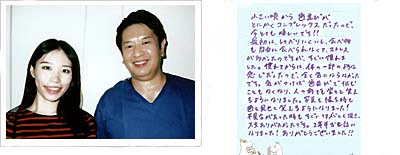 小さい頃から歯並びが
とにかくコンプレックスだったので、
今とても嬉しいです!!
最初は、しゃべりにくいし、食べ物
も自由に食べられなくて、ストレス
が多かったですが、すぐに慣れま
した。慣れてからは、体の一部のような
感じだったので、全く気にならなかった
です。気がつけば歯並びで悩む
こともなくなり、人の前でも笑える
ようになりました。写真を撮る時も
歯を見せて笑えるようになりました!
不具合があった時もすぐ対応して頂き、
大変ありがたかったです。2年半お世話に
なりました!ありがとうございました!!